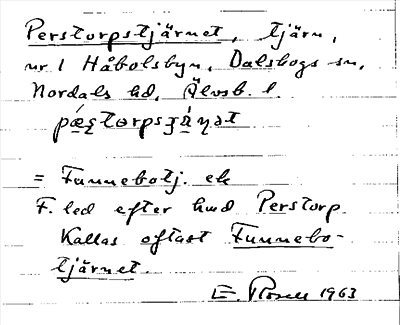 Perstorpstjärnet, tjärn,
nr 1 Håbolsbyn, Dalskogs sn,
Nordals hd, Älvsb. l.
= Funnebotj. ek
F. led efter hmd Perstorp.
Kallas oftast Funnebo-
tjärnet.
E. Rosell 1963